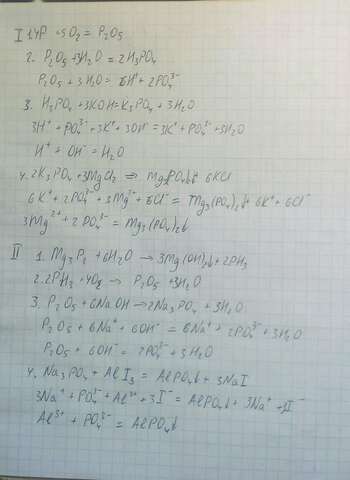 I 1. 4P + 5O₂ = P₂O₅
2. P₂O₅ + 3H₂O = 2H₃PO₄
P₂O₅ + 3H₂O = 6H⁺ + 2PO₄³⁻
3. H₃PO₄ + 3KOH = K₃PO₄ + 3H₂O
3H⁺ + PO₄³⁻ + 3K⁺ + 3OH⁻ = 3K⁺ + PO₄³⁻ + 3H₂O
H⁺ + OH⁻ = H₂O
4. 2K₃PO₄ + 3MgCl₂ ⇒ Mg₃(PO₄)₂↓ + 6KCl
6K⁺ + 2PO₄³⁻ + 3Mg²⁺ + 6Cl⁻ = Mg₃(PO₄)₂↓ + 6K⁺ + 6Cl⁻
3Mg²⁺ + 2PO₄³⁻ = Mg₃(PO₄)₂↓
II 1. Mg₃P₂ + 6H₂O → 3Mg(OH)₂↓ + 2PH₃
2. 2PH₃ + 4O₂ → P₂O₅ + 3H₂O
3. P₂O₅ + 6NaOH → 2Na₃PO₄ + 3H₂O
P₂O₅ + 6Na⁺ + 6OH⁻ = 6Na⁺ + 2PO₄³⁻ + 3H₂O
P₂O₅ + 6OH⁻ = 2PO₄³⁻ + 3H₂O
4. Na₃PO₄ + AlI₃ = AlPO₄↓ + 3NaI
3Na⁺ + PO₄³⁻ + Al³⁺ + 3I⁻ = AlPO₄↓ + 3Na⁺ + 3I⁻
Al³⁺ + PO₄³⁻ = AlPO₄↓